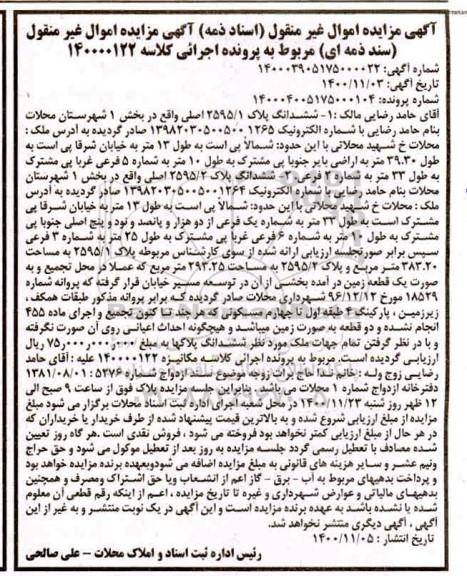 آگهی مزایده اموال غیر منقول (اسناد ذمه) آگهی مزایده اموال غیر منقول
(سند ذمه ای) مربوط به پرونده اجرائی کلاسه ۱۴۰۰۰۰۱۲۲
شماره آگهی: ۱۴۰۰۰۳۹۰۵۱۷۵۰۰۰۰۲۲
تاریخ آگهی: ۱۴۰۰/۱۱/۰۳
شماره پرونده: ۱۴۰۰۰۴۰۰۵۱۷۵۰۰۰۱۰۴
آقای حامد رضایی مالک :۱- ششدانگ پلاک ۲۵۹۵/۱ اصلی واقع در بخش ۱ شهرستان محلات
بنام حامد رضایی با شماره الکترونیک ۱۳۹۸۲۰۳۰۵۰۰۵۰۰۱۲۶۵ صادر گردیده به آدرس ملک :
محلات خ شهید محلاتی با این حدود: شمالاً پی است به طول ۱۳ متر به خیابان شرقا پی است به
طول ۳۹.۳۰ متر به اراضی بایر جنوبا پی مشترک به طول ۱۰ متر به شماره ۵ فرعی غربا پی مشترک
به طول ۳۳ متر به شماره ۲ فرعی ۲- ششدانگ پلاک ۲۵۹۵/۲ اصلی واقع در بخش ۱ شهرستان
محلات بنام حامد رضایی با شماره الکترونیک ۱۳۹۸۲۰۳۰۵۰۰۵۰۰۱۲۶۴ صادر گردیده به آدرس
ملک : محلات خ شهید محلاتی با این حدود: شمالاً پی است به طول ۱۳ متر به خیابان شرقا پی
مشترک است به طول ۳۳ متر به شماره یک فرعی از دو هزار و پانصد و نود و پنج اصلی جنوبا پی
مشترک به طول ۱۰ متر به شماره ۶ فرعی غربا پی مشترک به طول ۲۵ متر به شماره ۳ فرعی
سپس برابر صورتجلسه ارزیابی ارائه شده از سوی کارشناس مربوطه پلاک ۲۵۹۵/۱ به مساحت
۳۸۳.۲۰ متر مربع و پلاک ۲۵۹۵/۲ به مساحت ۲۹۳.۲۵ متر مربع که عملا در محل تجمیع و به
صورت یک قطعه زمین در آمده بخشی از آن در توسعه مسیر خیابان قرار گرفته که پروانه شماره
۱۸۵۲۹ مورخ ۹۶/۱۲/۱۲ شهرداری محلات صادر گردیده که برابر پروانه مذکور طبقات همکف ،
زیرزمین ، پارکینگ، طبقه اول تا چهارم مسکونی که هر چند تا کنون تجمیع و اجرای ماده ۴۵
انجام نشده و دو قطعه به صورت زمین میباشد و هیچگونه احداث اعیانی روی آن صورت نگرفته
و با در نظر گرفتن تمام جهات ملک مورد نظر ششدانگ پلاکها به مبلغ ریال
ارزیابی گردیده است. مربوط به پرونده اجرائی کلاسه مکانیزه ۱۴۰۰۰۰۱۲۲ علیه : آقای حامد
رضایی زوج وله : خانم ندا آجاج برات زوجه موضوع سند ازدواج شماره : ۵۲۷۶ - ۱۳۸۱/۰۸/۰۱
دفترخانه ازدواج شماره ۱ محلات می باشد. بنابراین جلسه مزایده پلاک فوق از ساعت ۹ صبح الی
۱۲ ظهر روز شنبه ۱۴۰۰/۱۱/۲۳ در محل شعبه اجرای اداره ثبت اسناد محلات برگزار می شود مبلغ
مزایده از مبلغ ارزیابی شروع شده و به بالاترین قیمت پیشنهاد شده از طرف خریدار یا خریداران که
در هر حال از مبلغ ارزیابی کمتر نخواهد بود فروخته می شود ، فروش نقدی است .هر گاه روز تعیین
شده مصادف با تعطیل رسمی گردد جلسه مزایده به روز بعد از تعطیل موکول می شود و حق حراج
ونیم عشر و سایر هزینه های قانونی به مبلغ مزایده اضافه می شودوبعهده برنده مزایده خواهد بود
و پرداخت بدهیهای مربوط به آب - برق - گاز اعم از انشعاب ویا حق اشتراک ومصرف و همچنین
بدهیهای مالیاتی و عوارض شهرداری و غیره تا تاریخ مزایده ، اعم از اینکه رقم قطعی آن معلوم
شده یا نشده باشد به عهده برنده مزایده است و این آگهی در یک نوبت منتشر و به غیر از این
آگهی ، آگهی دیگری منتشر نخواهد شد.
تاریخ انتشار : ۱۴۰۰/۱۱/۰۵
رئیس اداره ثبت اسناد و املاک محلات - علی صالحی